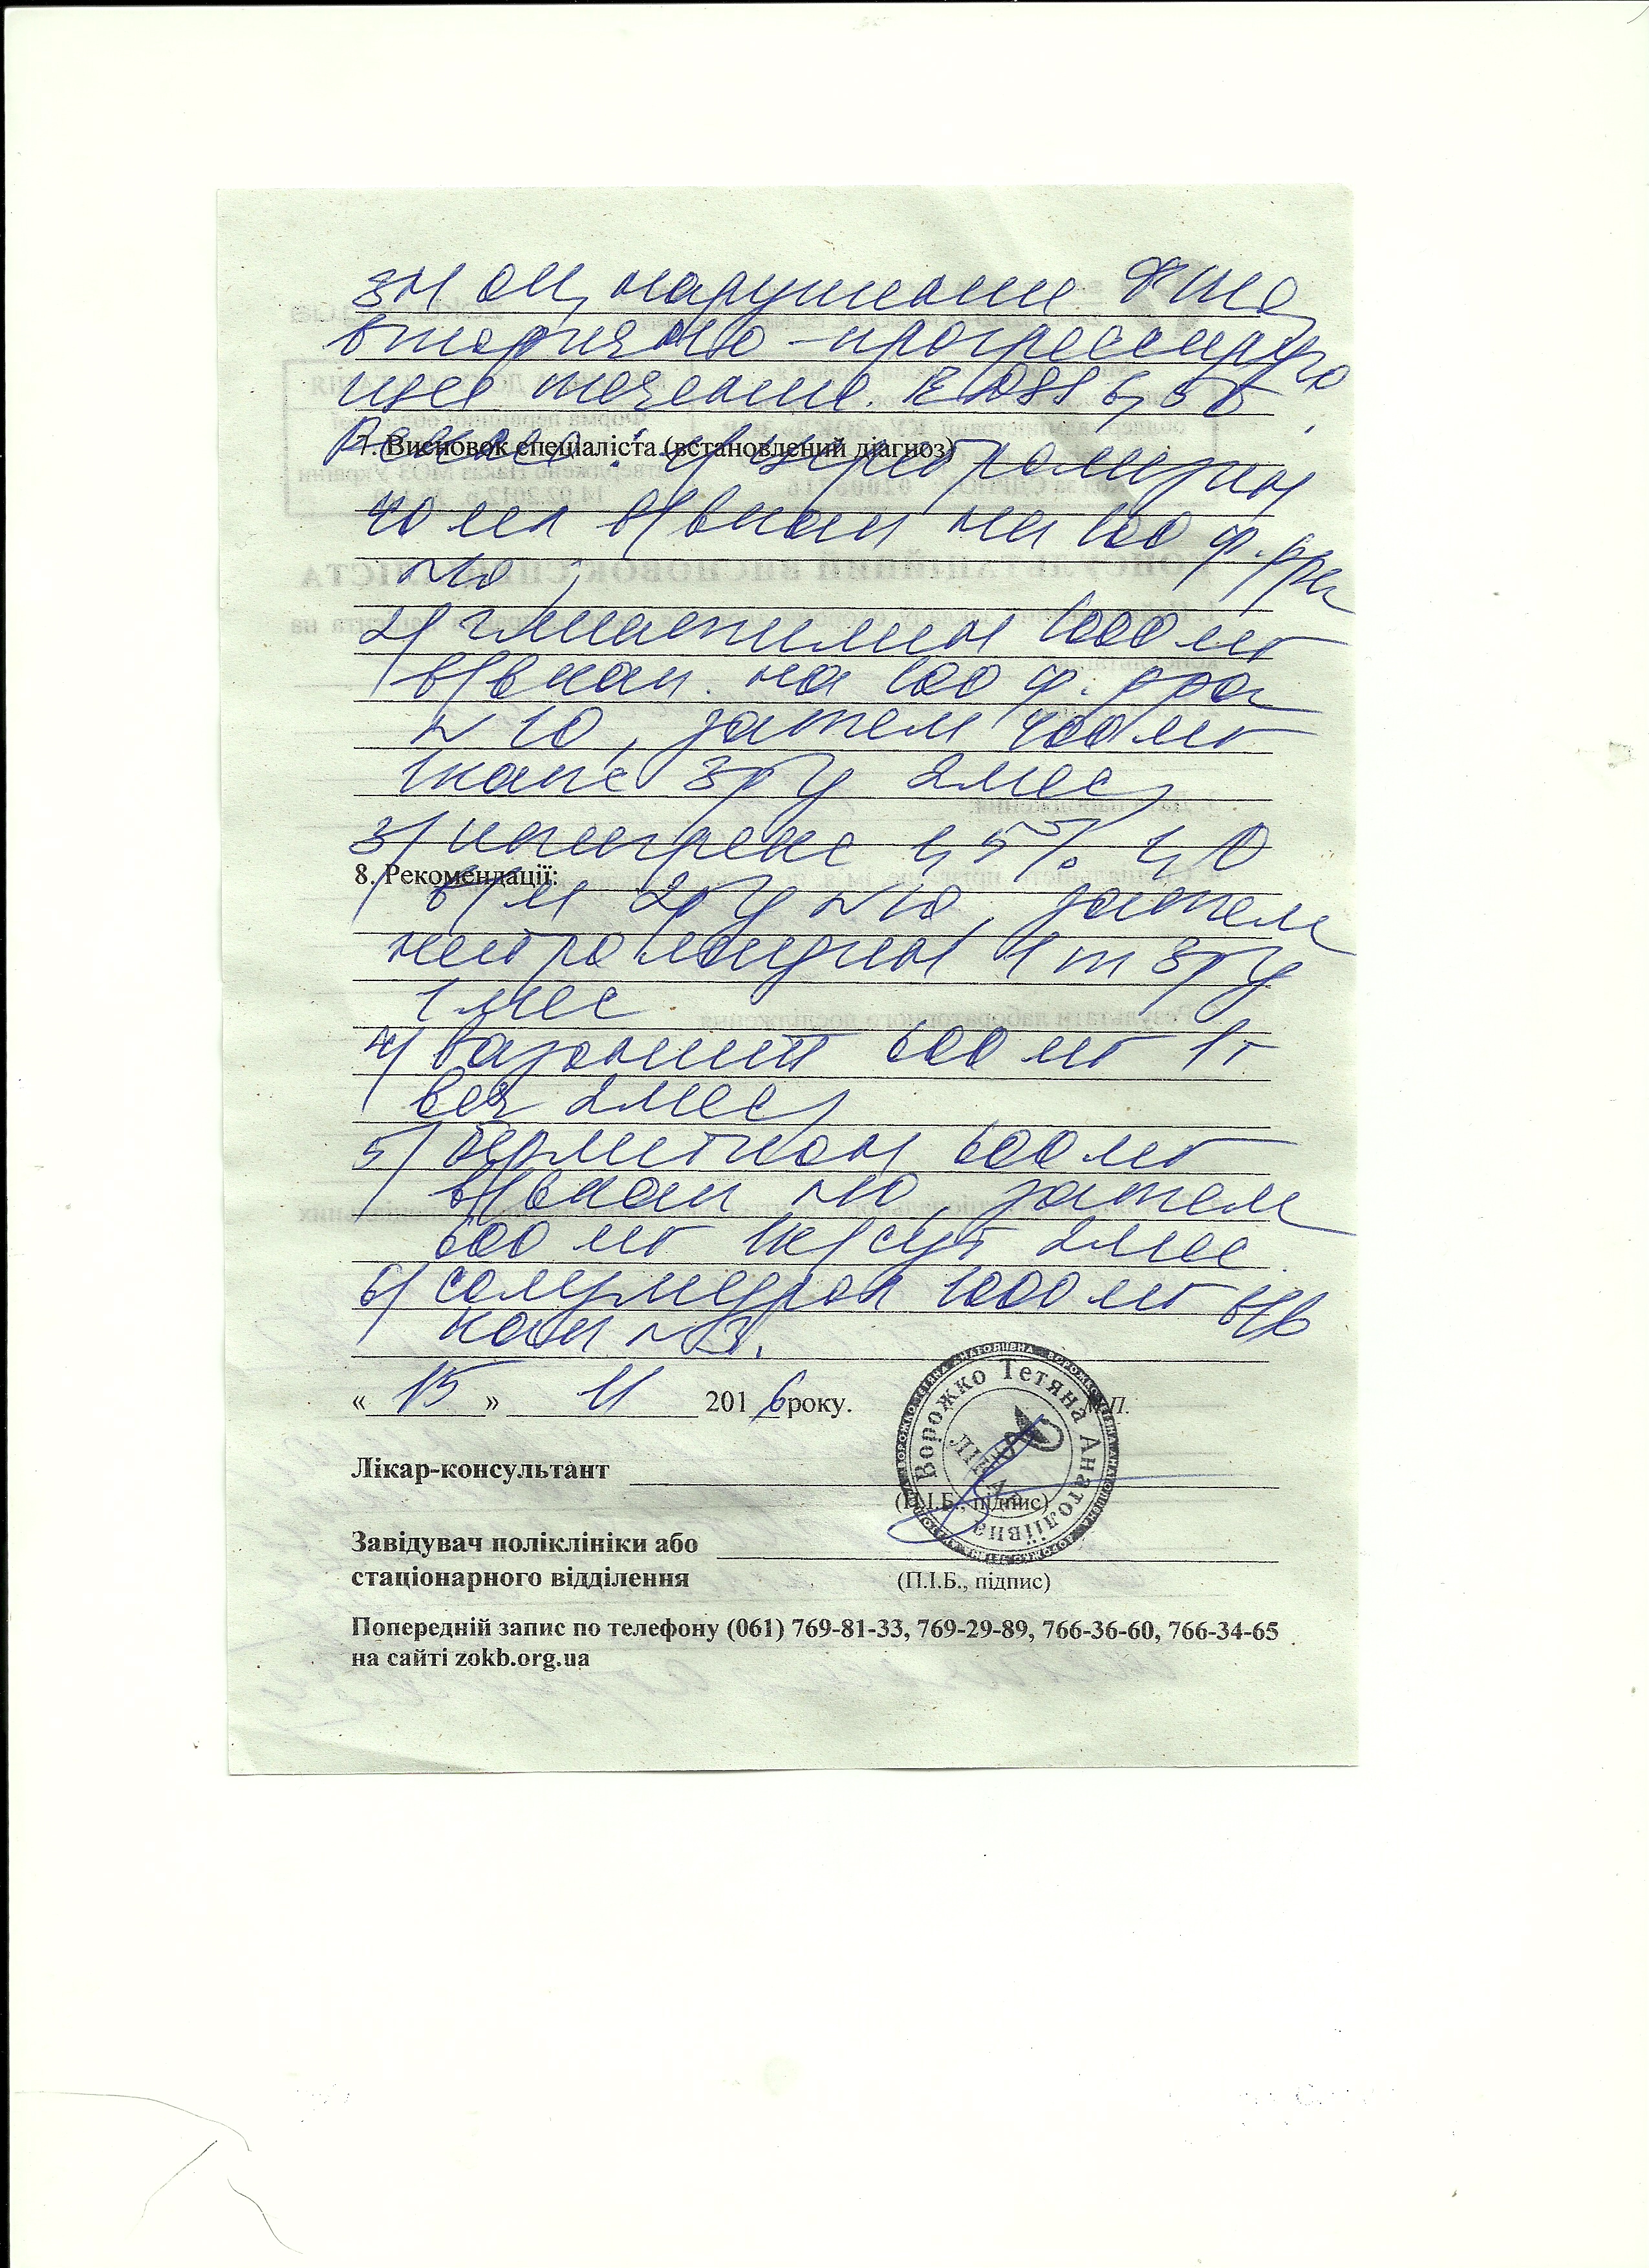 ЗН ОИ, нарушением ФТО,
вторично-прогрессирую
щее течение. EDSS 6,5 б.
7. Висновок спеціаліста (встановлений діагноз)
Реком: 1)
40 мл в/в кап на 100 ф. р-ра
N10;
2) глиатилин 1000 мг
в/в кап. на 100 ф. р-ра
N 10, затем 400 мг
1 капс 3 р/д 2 мес,
3) 1,5% 1,0
8. Рекомендації:
в/м 2 р/д N10, затем
нейромидин 1 т 3 р/д
1 мес
4) 600 мг 1 т
веч 2 мес,
5) берлитион 600 мг
в/в кап N10, затем
600 мг 1 к/сут 2 мес
6) солумедрол 1000 мг в/в
кап N3.
« 15 » 11 2016 року. М.П.
Ворожко Тетяна Анатоліївна
ЛІКАР
Лікар-консультант
(П.І.Б., підпис)
Завідувач поліклініки або
стаціонарного відділення
(П.І.Б., підпис)
Попередній запис по телефону (061) 769-81-33, 769-29-89, 766-36-60, 766-34-65
на сайті zokb.org.ua